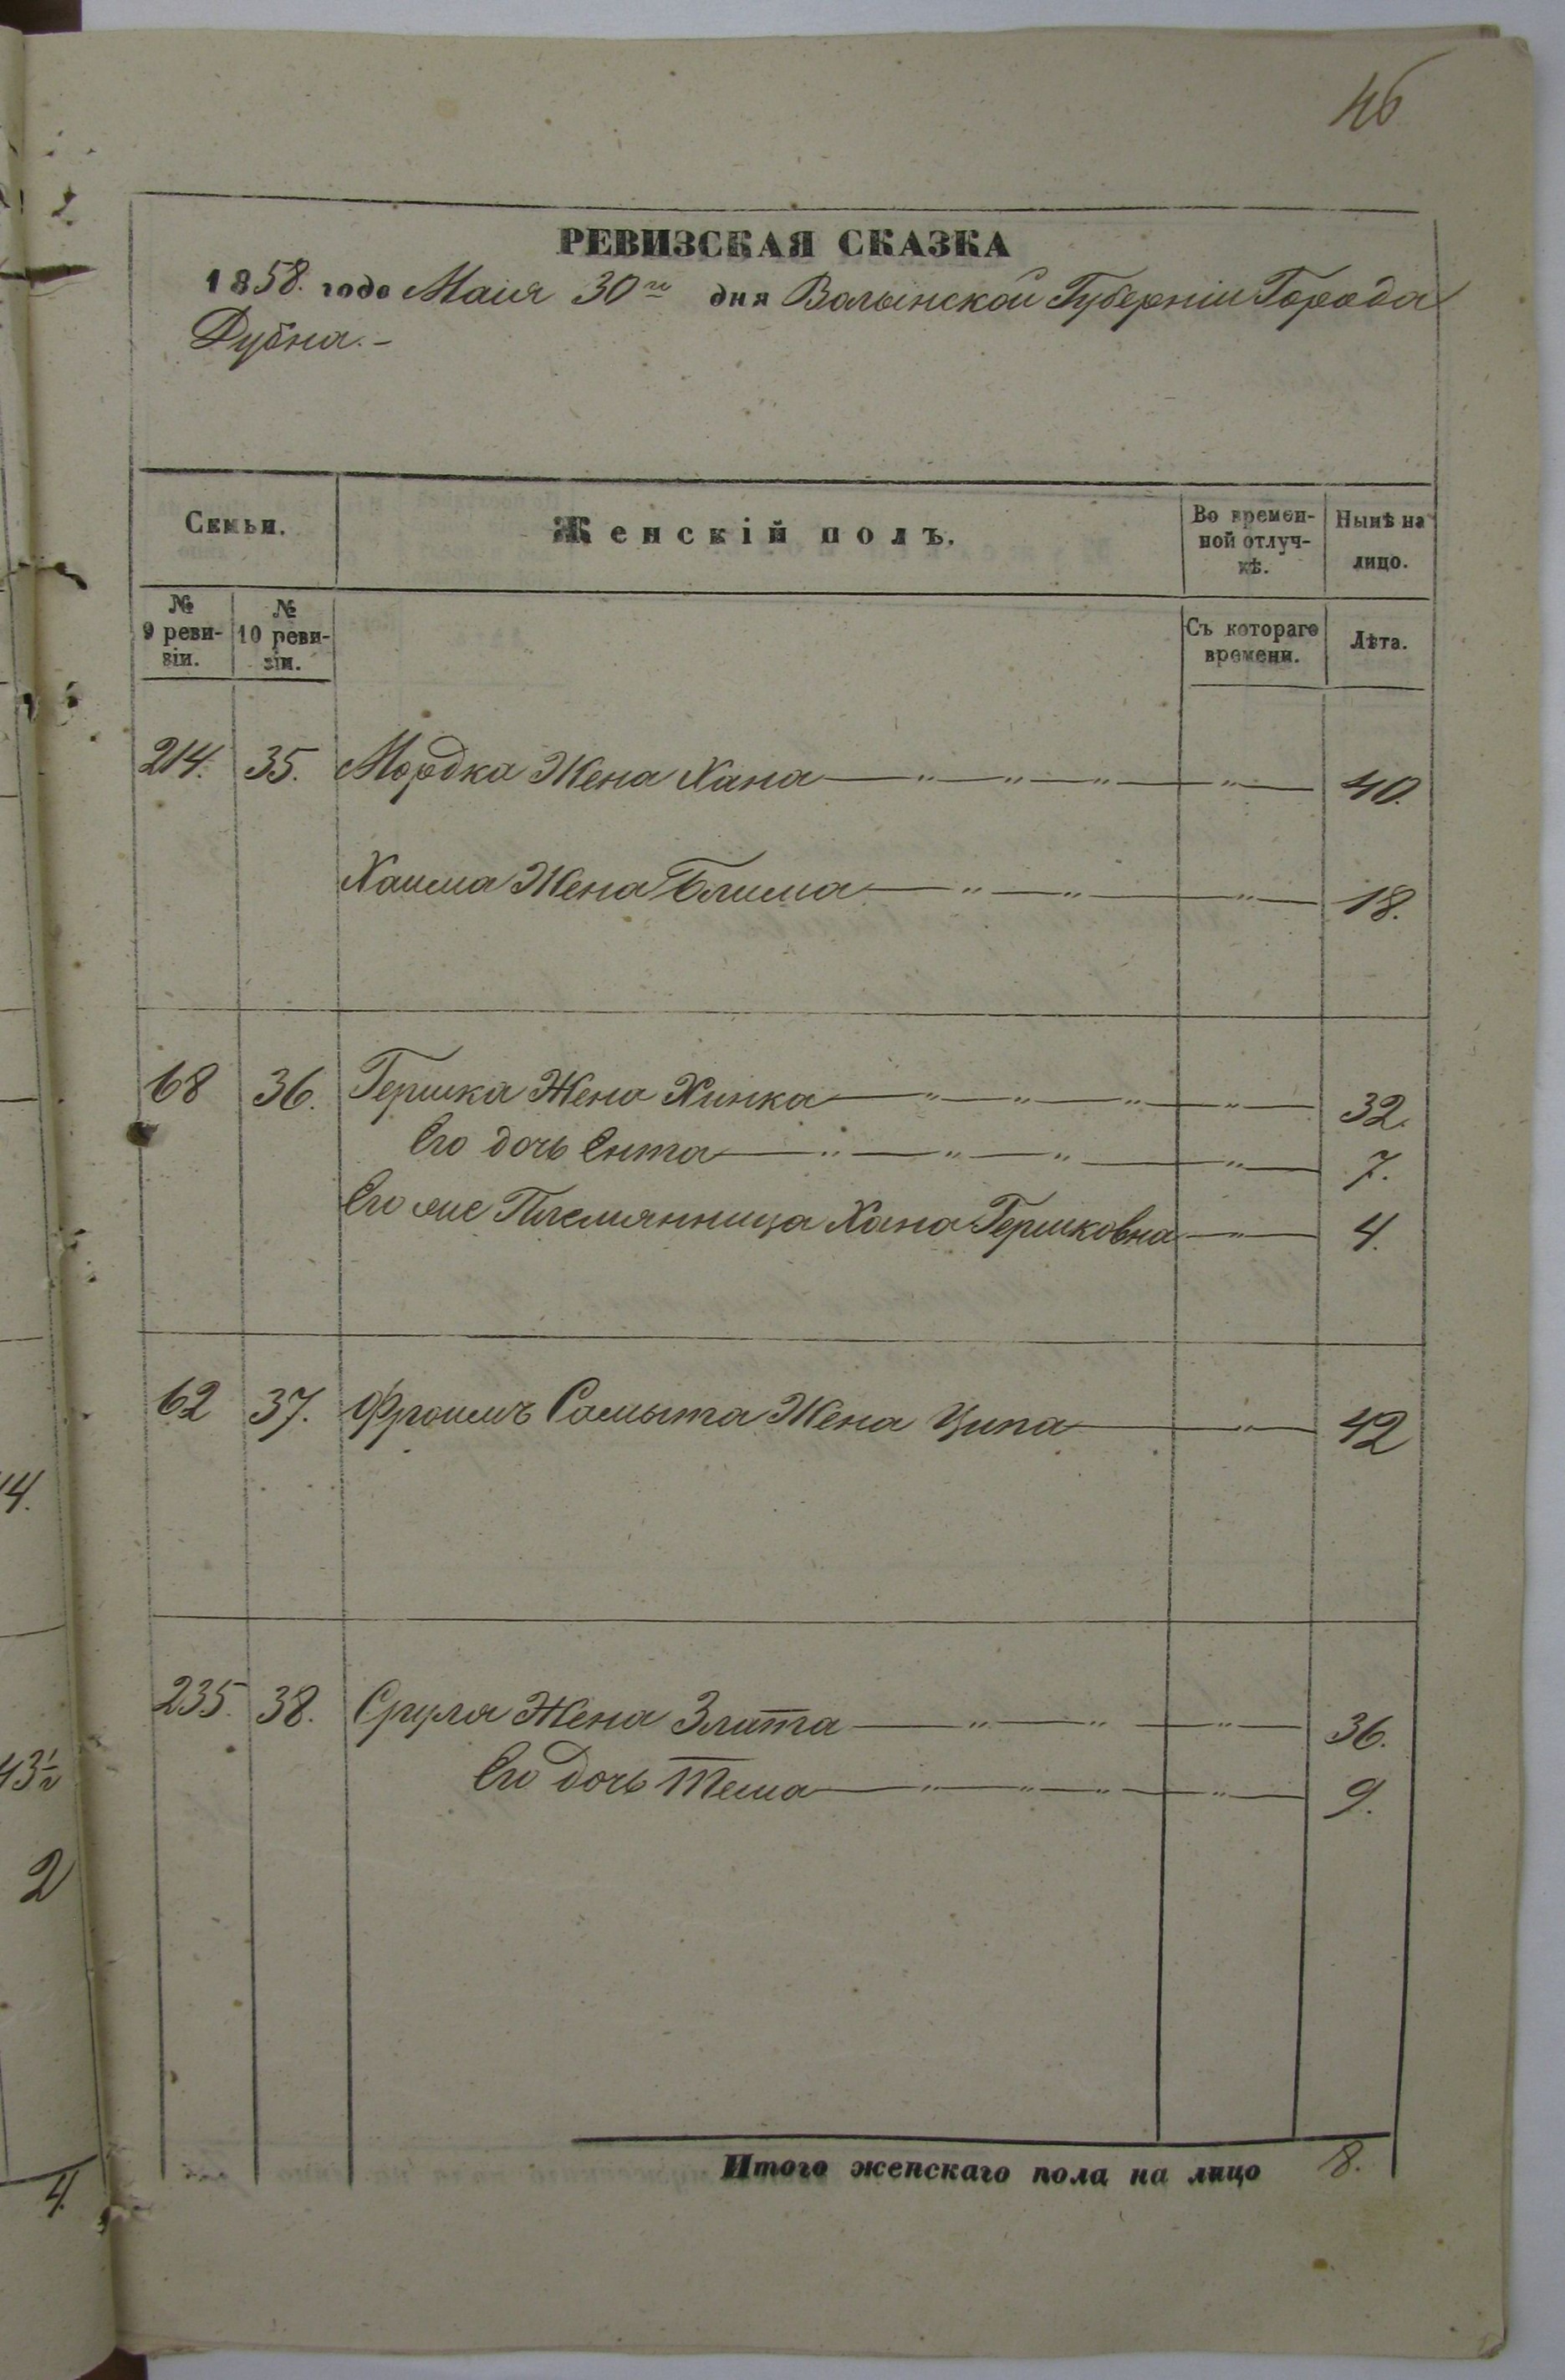 46
РЕВИЗСКАЯ СКАЗКА
1858. года Маія 30го дня Волынской Губерніи Города
Дубна.-
Семьи. Женскій полъ. Во времен-ной отлуч-кѣ. Нынѣ на лицо.
№ 9 реви-зіи. № 10 реви-зіи. Съ котораго времени. Лѣта.
214. 35. Мордка Жена Хана — " — " — " — " — 40.
Хаима Жена Блима — " — " — " — 18.
68 36. Гершка Жена Хинка — " — " — " — " — 32.
Его дочь Ента — " — " — " — " — 7.
Его же Племянница Хана Гершковна — " — 4.
62 37. Фроимъ Самыта Жена Ципа — " — 42
235. 38. Сруля Жена Злата — " — " — " — 36.
Его дочь Тема — " — " — " — " — 9.
Итого женскаго пола на лицо 8.
14.
2
4.